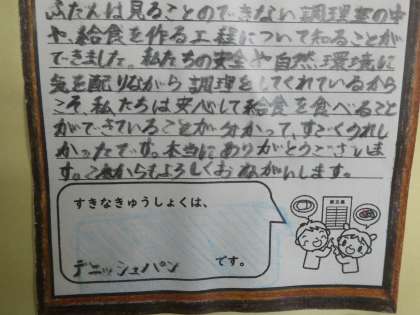 ふだんは見ることのできない調理室の中
や、給食を作る工程について知ることが
できました。私たちの安全や自然、環境に
気を配りながら調理をしてくれているから
こそ、私たちは安心して給食を食べること
ができていることが分かって、すごくうれし
かったです。本当にありがとうございま
す。これからもよろしくおねがいします。
すきなきゅうしょくは、
デニッシュパン
です。
献立表